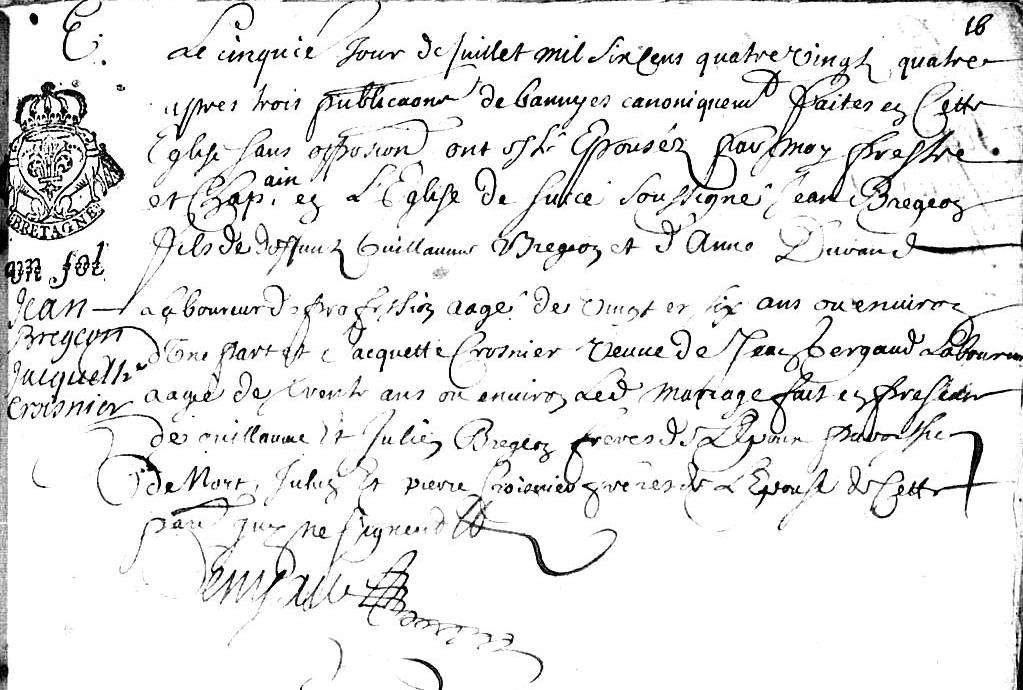 16
E.
Le cinquie Jour de Juillet mil Six Cens quatre vingt quatre
apres trois publicaons de bannyes canoniquemt faites en Cette
Eglise sans opposion ont esté Epousez par moy prestre
et Chap.ain en L'Eglise de Sucé Soussigné Jean Bregeon
fils de deffunt Guillaume Bregeon et d'Anne Durand
BRETAGNE
un sol
Jean
Bregeon
Jacquette
Croisnier
Laboureur de profession aagé de vingt et six ans ou environ
d'Une part et Jacquette Crosnier Veuve de Jean bergaud Laboureur
aagée de trente ans ou environ Led mariage fait en presence
de Guillaume Et Julien Bregeon freres de L'Epoux parroisse
de Nort, Julien Et pierre Croisnier freres de L'Epouse de Cette
parr qui ne signent